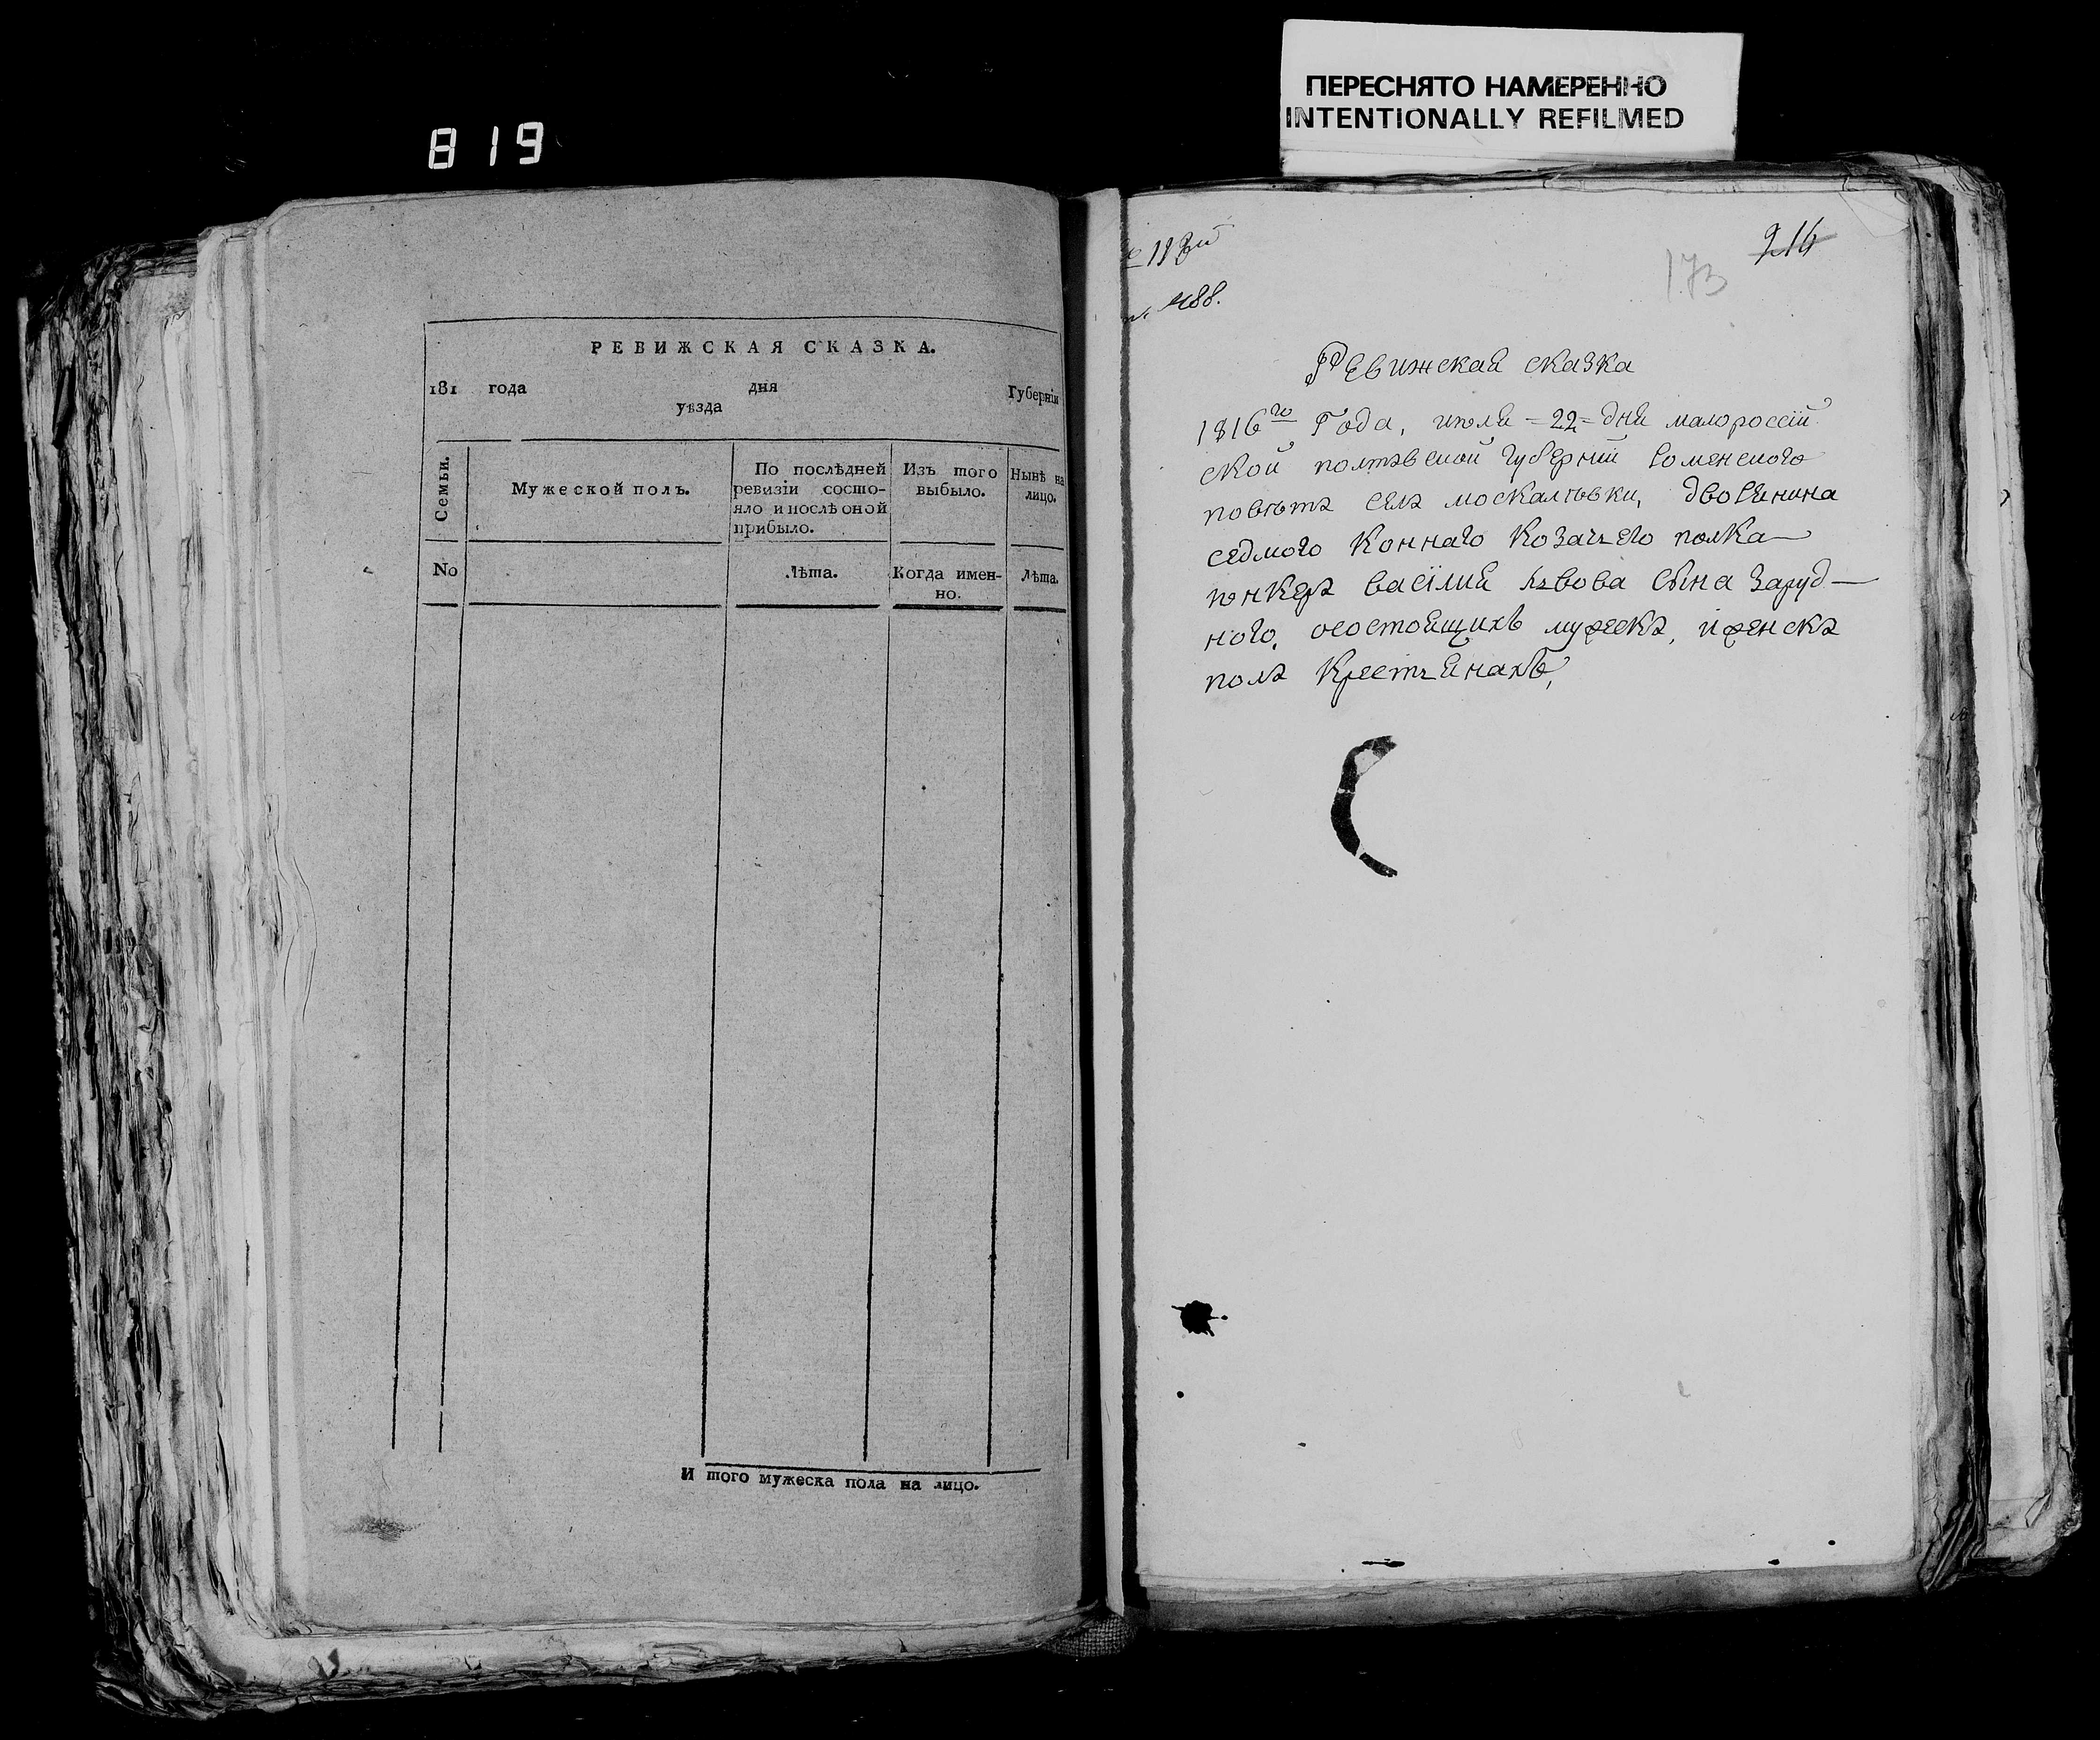 819
ПЕРЕСНЯТО НАМЕРЕННО
INTENTIONALLY REFILMED
РЕВИЖСКАЯ СКАЗКА.
181 года дня Губерніи
уѣзда
Семьи.
Мужеской полъ.
По послѣдней
ревизіи состо-
яло и послѣ оной
прибыло.
Изъ того
выбыло.
Нынѣ на
лицо.
No
Лѣта.
Когда имен-
но.
Лѣта.
И того мужеска пола на лицо.
488.
173
Ревижская сказка
1816го Года, июля =22= дня малороссій
ской полтавской губерніи роменского
повѣта села москалювки, дворянина
седмого Конного Козачего полка
юнкера василия львова сына Заруд-
ного, осостоящихъ мужеска, и женска
пола Крестьянахъ,